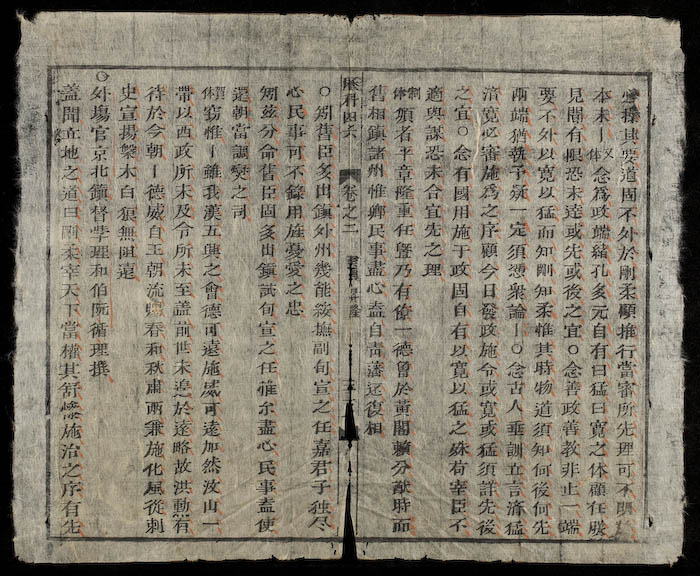 必操其要道固不外於剛柔顧推行當審所先理可不明
本末一体又念為政端緒孔多元自有曰猛曰寬之体顧任發
見聞有限恐未達或先或後之宜○念善政善教非止一端
要不外以寬以猛而知剛知柔惟其時物道須知何後何先
兩端猶執予疑一定須憑衆論一○念古人垂訓立言濟猛
濟寬必審施為之序顧今日發政施令或寬或猛須詳先後
之宜○念有國用施于政固自有以寬以猛之殊苟宰臣不
適與謀恐未合宜先之理
制体頒者平章隆重任曁乃有僚一德曾於黃閣賴分猷時而
舊相鎮諸州惟鄉民事盡心盍自靑藩还復相
歷科四六 卷之二
○矧舊臣多出鎮外州幾能綏撫副旬宣之任嘉君子独尽
心民事可不錄用旌憂愛之忠
矧玆分命舊臣固多出鎮試旬宣之任惟尔盡心民事盍使
還朝當調燮之司
体窃惟一雖我漢五典之會德可遠施威可遠加然汝山一
帶以西政所未及令所未至盖前世未遑於遠略故洪勳有
待於今朝一德威自王朝流動春和秋肅兩兼施化風從刺
史宣揚槃木白狼無阻遠
○外場官京北鎮督學理和伯阮循理撰
盖聞立地之道曰剛柔宰天下當權其舒慘施治之序有先